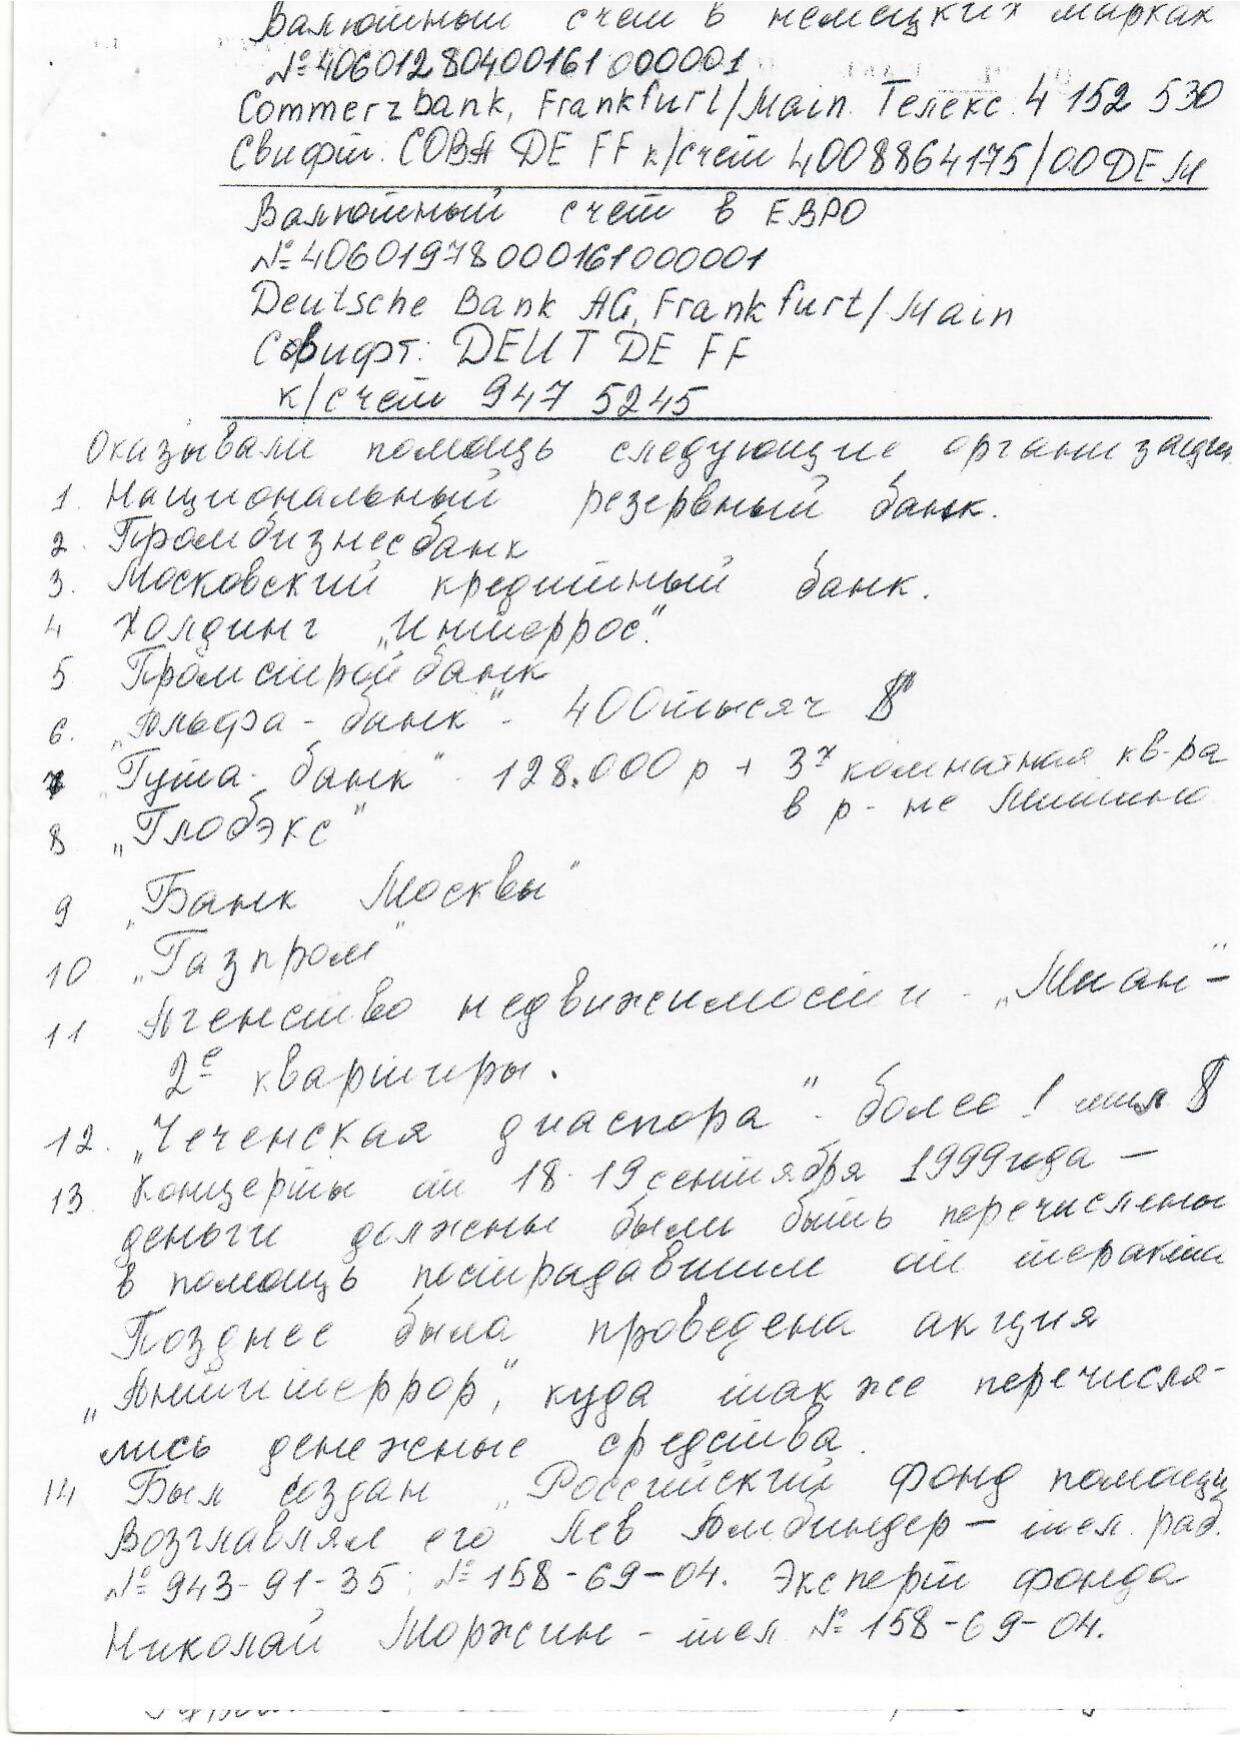 Валютный счет в немецких марках
№ 40601280400161000001
Commerzbank, Frankfurt/Main. Телекс 4 152 530
Свифт. COBA DE FF к/счет 4008864175/00 DEM
Валютный счет в ЕВРО
№ 40601978000161000001
Deutsche Bank AG, Frankfurt/Main
Свифт: DEUT DE FF
к/счет 947 5245
Оказывали помощь следующие организации
1. Национальный резервный банк.
2. Промбизнесбанк
3. Московский кредитный банк.
4 Холдинг „Интеррос".
5 Промстройбанк
6. „Альфа-банк" - 400 тысяч $
7 „Гута-банк" - 128.000 р + 3х комнатная кв-ра
в р-не Митино
8 „Глобэкс"
9 „Банк Москвы"
10 „Газпром"
11 Агенство недвижимости - „Миан" -
2е квартиры.
12. „Чеченская диаспора" - более 1 мил $
13 Концерты от 18-19 сентября 1999 года —
деньги должны были быть перечислены
в помощь пострадавшим от теракта
Позднее была проведена акция
„Антитеррор", куда так же перечисля-
лись денежные средства.
14 Был создан „Российский фонд помощи
Возглавлял его Лев Амбиндер — тел. раб.
№ 943-91-35; № 158-69-04. Эксперт фонда
Николай Моржин - тел № 158-69-04.